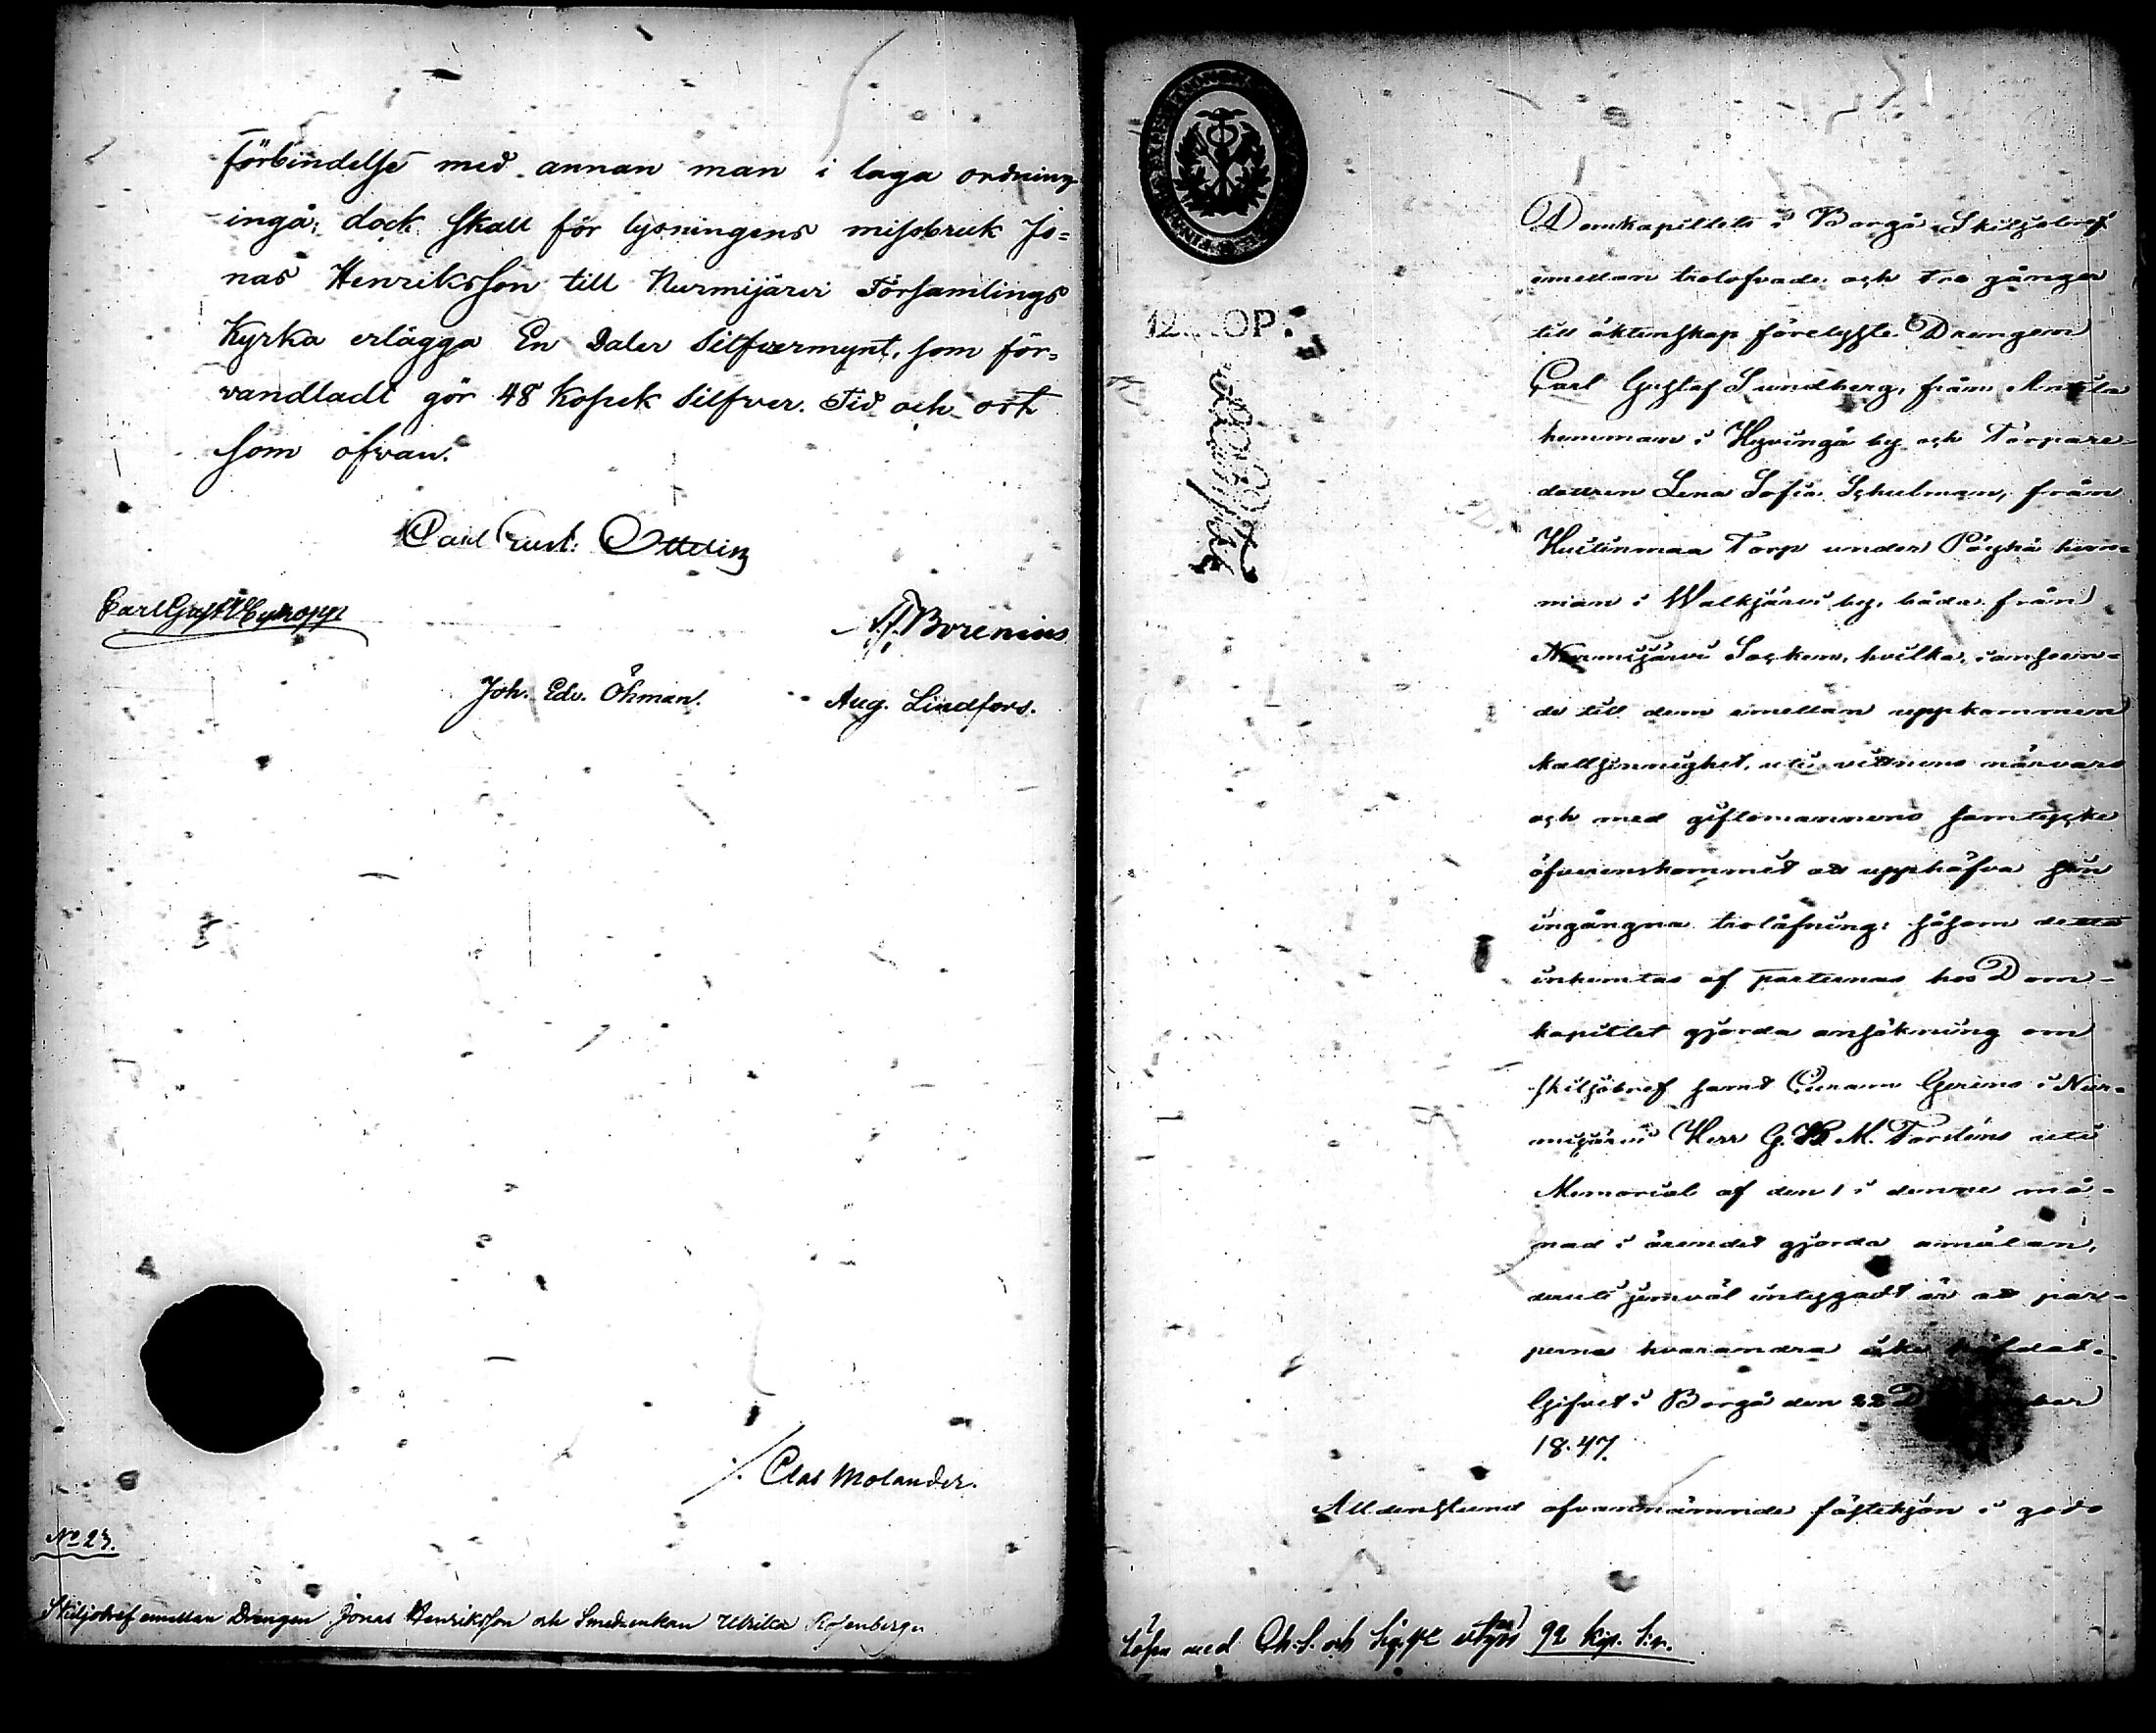 förbindelse med annan man i laga ordning
ingå; dock skall för lysningens missbruk Jo=
nas Henriksson till Nurmijärvi Församlings
Kyrka erlägga En Daler Silfvermynt, som för=
vandladt gör 48 Kopek Silfver. Tid och ort
som ofvan.
Carl Gust: Ottelin
Carl Gust
Borenius
Joh. Edv. Öhman.
Aug. Lindfors.
Clas Molander.
No 23.
Skiljobref emellan Drengen Jonas Henriksson och Smedsenkan Ulrika Rosenberg
12 KOP.
Domkapitlets i Borgå Skiljobref
emellan trolofvade och tre gånger
till äktenskap förelyste Drengen
Carl Gustaf Sundberg, från Anttila
hemman i Hyvingä by och Torpare-
dottren Lena Sofia Schulman, från
Huitinmaa Torp under Pöyhä hem=
man i Walkjärvi by, båda från
Nurmijärvi Socken, hvilka, i anseen-
de till dem emellan uppkommen
kallsinnighet, uti vittnens närvaro
och med giftomannens samtycke
öfverenskommit att upphäfva sin
ingångna trolåfning; såsom detta
inhemtas af parternas hos Dom-
kapitlet gjorda ansökning om
skiljobref samt Curam Gerens i Nur-
mijärvi Herr G. H. M. Forsténs uti
Memorial af den 1 i denne må-
nad i ärendet gjorda anmälan,
deruti jemväl intygadt är att par-
terna hvarandra icke häfdat.
Gifvet i Borgå den 22 December
1847.
Alldenstund ofvannämnde fästehjon i godo
Lösen med Ch. S. och 92 kop. S:r.